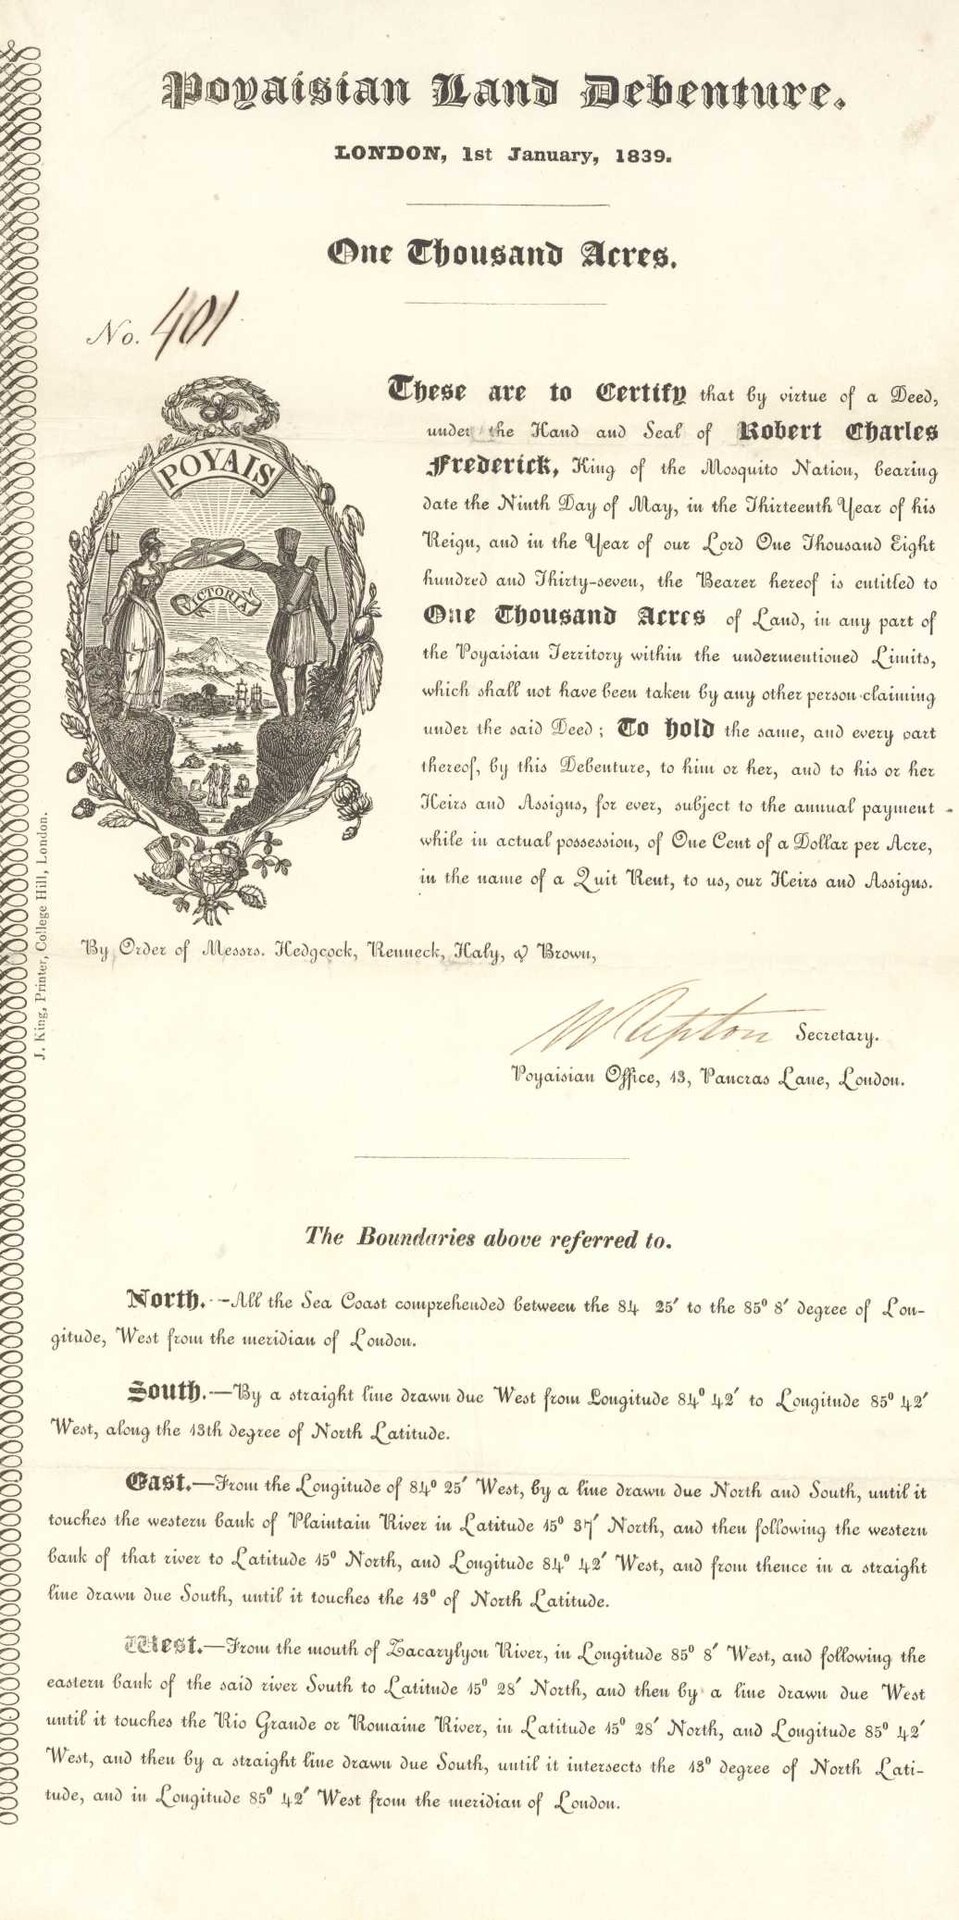 Poyaisian Land Debenture.
LONDON, 1st January, 1839.
One Thousand Acres.
No. 401
POYAIS
VICTORIA
These are to Certify that by virtue of a Deed,
under the Hand and Seal of Robert Charles
Frederick, King of the Mosquito Nation, bearing
date the Ninth Day of May, in the Thirteenth Year of his
Reign, and in the Year of our Lord One Thousand Eight
hundred and Thirty-seven, the Bearer hereof is entitled to
One Thousand Acres of Land, in any part of
the Poyaisian Territory within the undermentioned Limits,
which shall not have been taken by any other person claiming
under the said Deed; To hold the same, and every part
thereof, by this Debenture, to him or her, and to his or her
Heirs and Assigns, for ever, subject to the annual payment
while in actual possession, of One Cent of a Dollar per Acre,
in the name of a Quit Rent, to us, our Heirs and Assigns.
J. King, Printer, College Hill, London.
By Order of Messrs. Hedgcock, Renneck, Haly, & Brown,
W Upton Secretary.
Poyaisian Office, 13, Pancras Lane, London.
The Boundaries above referred to.
North.—All the Sea Coast comprehended between the 84 25′ to the 85° 8′ degree of Lon-
gitude, West from the meridian of London.
South.—By a straight line drawn due West from Longitude 84° 42′ to Longitude 85° 42′
West, along the 13th degree of North Latitude.
East.—From the Longitude of 84° 25′ West, by a line drawn due North and South, until it
touches the western bank of Plaintain River in Latitude 15° 37′ North, and then following the western
bank of that river to Latitude 15° North, and Longitude 84° 42′ West, and from thence in a straight
line drawn due South, until it touches the 13° of North Latitude.
West.—From the mouth of Zacarylyon River, in Longitude 85° 8′ West, and following the
eastern bank of the said river South to Latitude 15° 28′ North, and then by a line drawn due West
until it touches the Rio Grande or Romaine River, in Latitude 15° 28′ North, and Longitude 85° 42′
West, and then by a straight line drawn due South, until it intersects the 13° degree of North Lati-
tude, and in Longitude 85° 42′ West from the meridian of London.